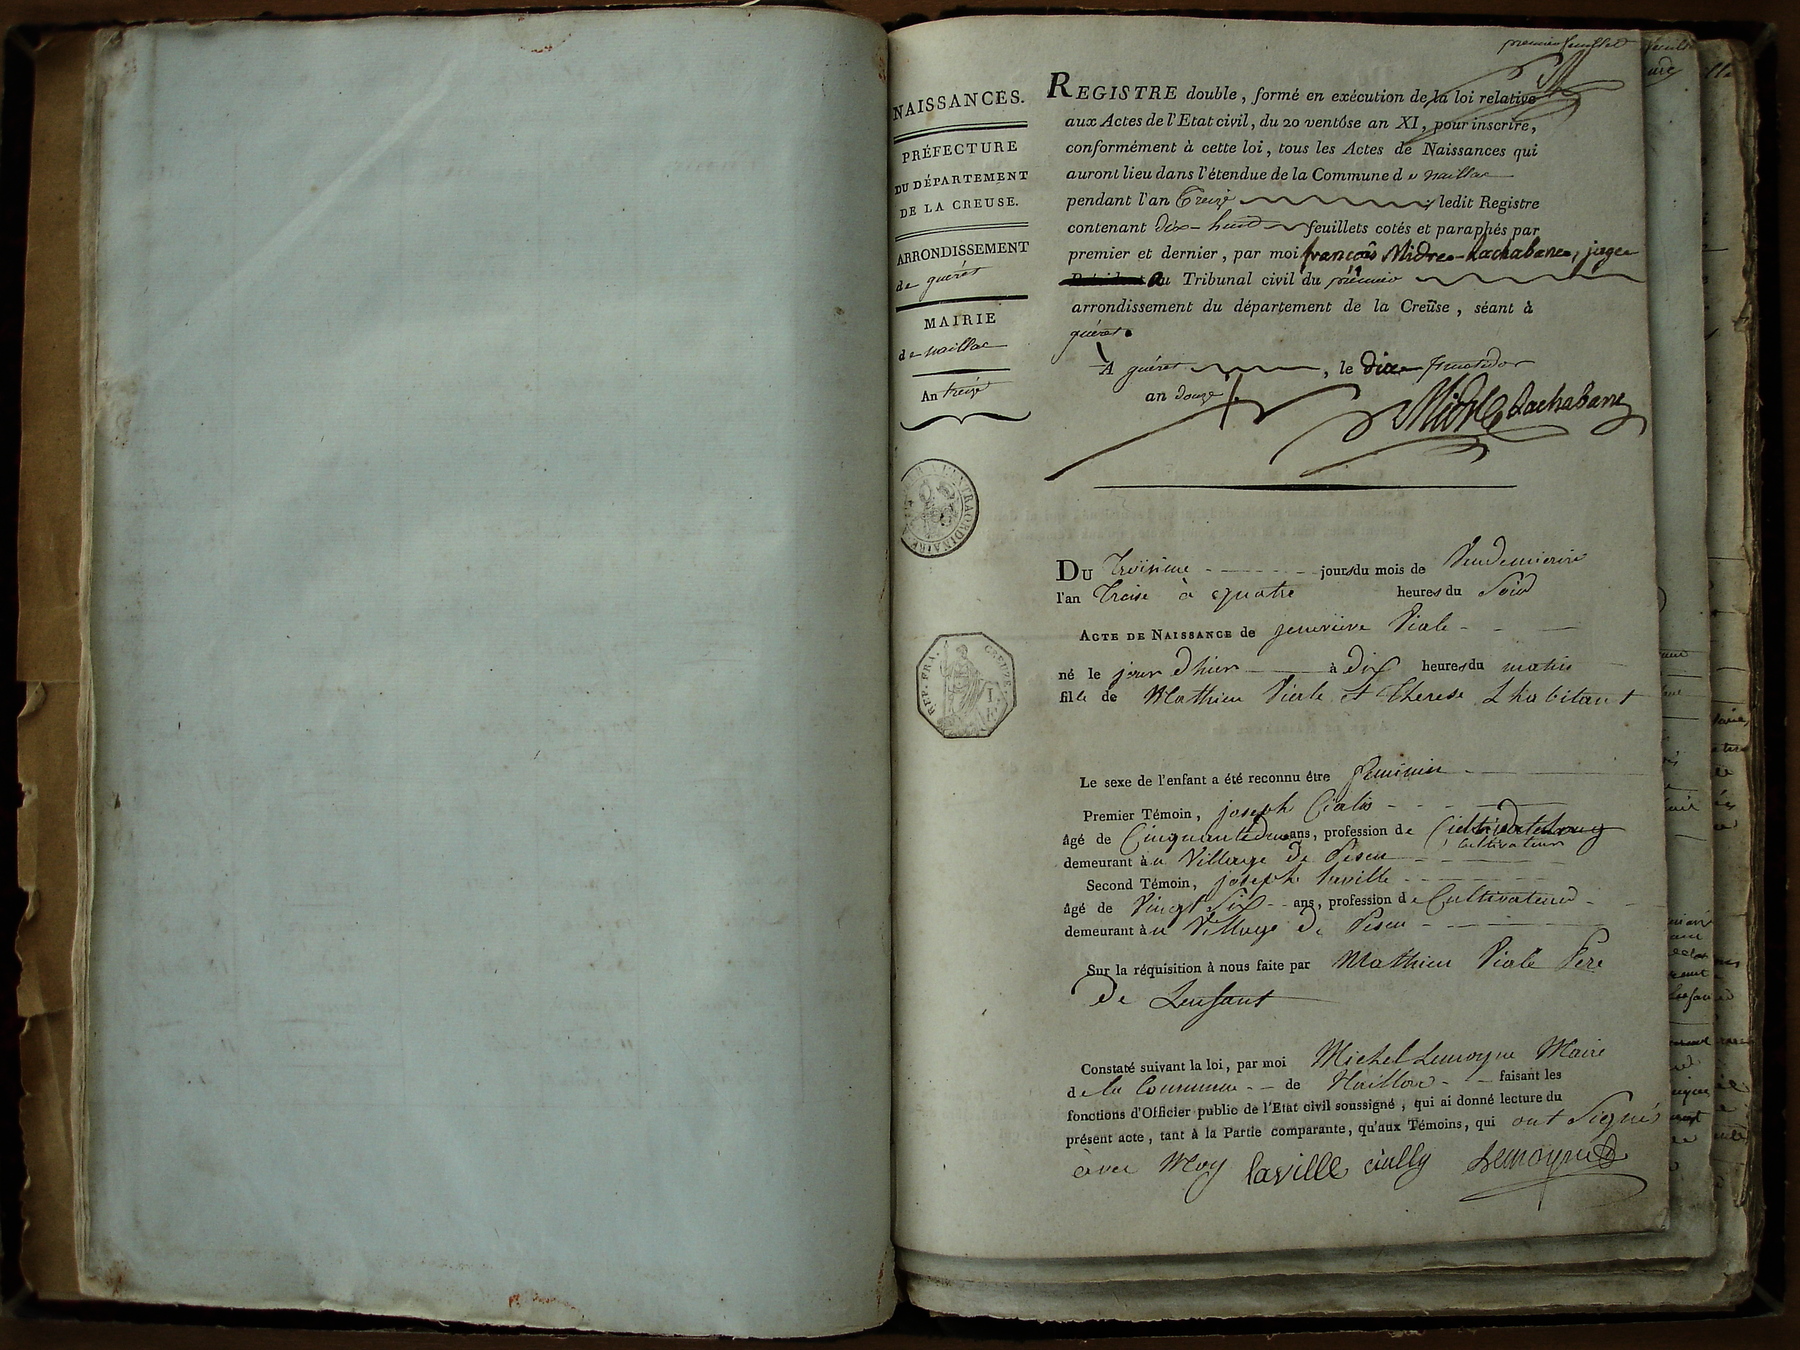 premier feuillet
NAISSANCES.
PRÉFECTURE
DU DÉPARTEMENT
DE LA CREUSE.
ARRONDISSEMENT
de guéret
MAIRIE
de naillac
An treize
REGISTRE double, formé en exécution de la loi relative
aux Actes de l'Etat civil, du 20 ventôse an XI, pour inscrire,
conformément à cette loi, tous les Actes de Naissances qui
auront lieu dans l'étendue de la Commune de naillac
pendant l'an Treize ledit Registre
contenant dix-huit feuillets cotés et paraphés par
premier et dernier, par moi françois Midre-Lachabane, juge
au Tribunal civil du premier
arrondissement du département de la Creuse, séant à
guéret.
A guéret, le dix
an douze
Midre Lachabane
EXTRAORDINAIRE
DU Troisieme jours du mois de Vendemiaire
l'an Treise à quatre heures du Soir
ACTE DE NAISSANCE de genevieve Viale
né le jour d'hier à dix heures du matin
fille de Mathieu Viale et Therese Lhabitant
REP. FRA.
CREUZE.
Le sexe de l'enfant a été reconnu être feminin
Premier Témoin, joseph
âgé de Cinquante deux ans, profession de
cultivateur
demeurant au Village de
Second Témoin, joseph laville
âgé de Vingt Six ans, profession de Cultivateur
demeurant au Village de
Sur la réquisition à nous faite par Mathieu Viale Pere
De Lenfant
Constaté suivant la loi, par moi Michel Lemoyne Maire
de la Commune de Naillac faisant les
fonctions d'Officier public de l'Etat civil soussigné, qui ai donné lecture du
présent acte, tant à la Partie comparante, qu'aux Témoins, qui ont Signés
avec Moy laville cially Lemoyne